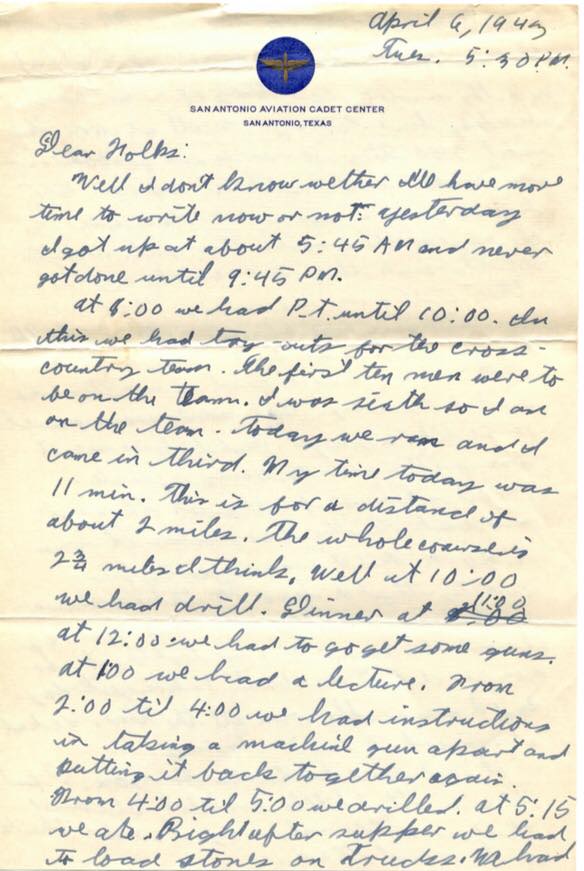 April 6, 1943
Tues. 5:30 P.M.
SAN ANTONIO AVIATION CADET CENTER
SAN ANTONIO, TEXAS
Dear Folks:
Well I don't know wether I'll have more
time to write now or not. Yesterday
I got up at about 5:45 AM and never
got done until 9:45 PM.
At 8:00 we had P.T. until 10:00. In
this we had try-outs for the cross-
country team. The first ten men were to
be on the team. I was sixth so I am
on the team. Today we ran and I
came in third. My time today was
11 min. This is for a distance of
about 2 miles. The whole course is
2 3/4 miles I think. Well at 10:00
we had drill. Dinner at 11:00
at 12:00 we had to go get some guns.
at 1:00 we had a lecture. From
2:00 til 4:00 we had instructions
in taking a machine gun apart and
putting it back together again.
From 4:00 til 5:00 we drilled. at 5:15
we ate. Right after supper we had
to load stones on trucks. We had